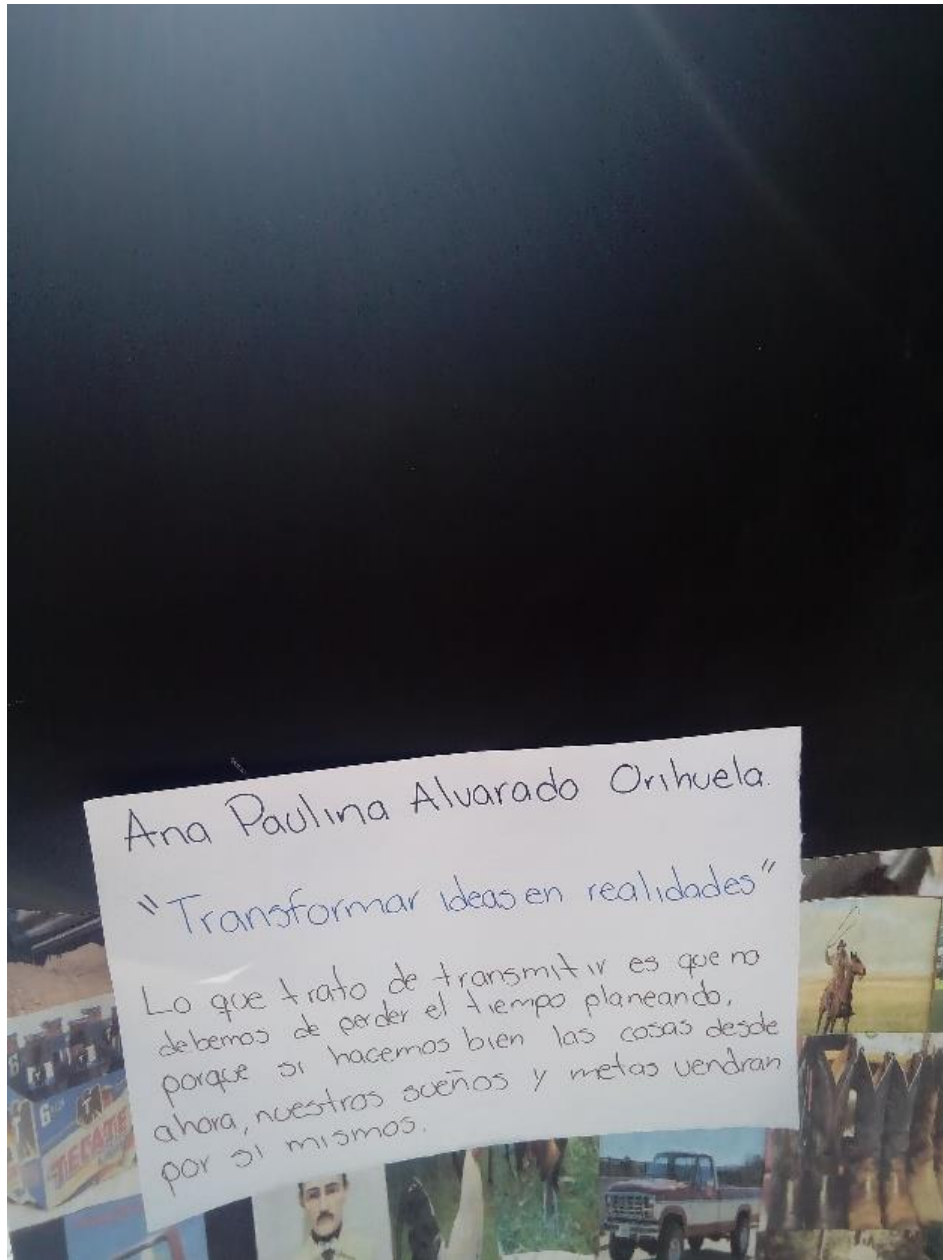 Ana Paulina Alvarado Orihuela.
"Transformar ideas en realidades"
Lo que trato de transmitir es que no
debemos de perder el tiempo planeando,
porque si hacemos bien las cosas desde
ahora, nuestros sueños y metas vendran
por si mismos.
6
TECATE